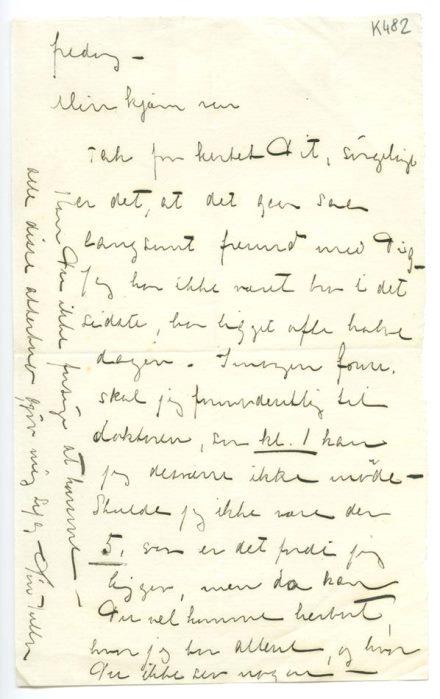 K482
fredag –
Min kjære ven
Tak for kortet Dit, sørgelig
er det, at det gaar saa
langsomt fremad med Dig –
Jeg har ikke været bra i det
sidste, har ligget ofte halve
dagen – Imorgen form.
skal jeg formodentlig til
doktoren, saa kl. 1 kan
jeg desværre ikke møde –
Skulde jeg ikke være der
5, saa er det fordi jeg
ligger, men da kan
Du vel komme herbort,
hvor jeg bor allene, og hvor
Du ikke ser nogen –
Kan Du ikke forsøge at komme –
alle disse gjør mig syg – Din